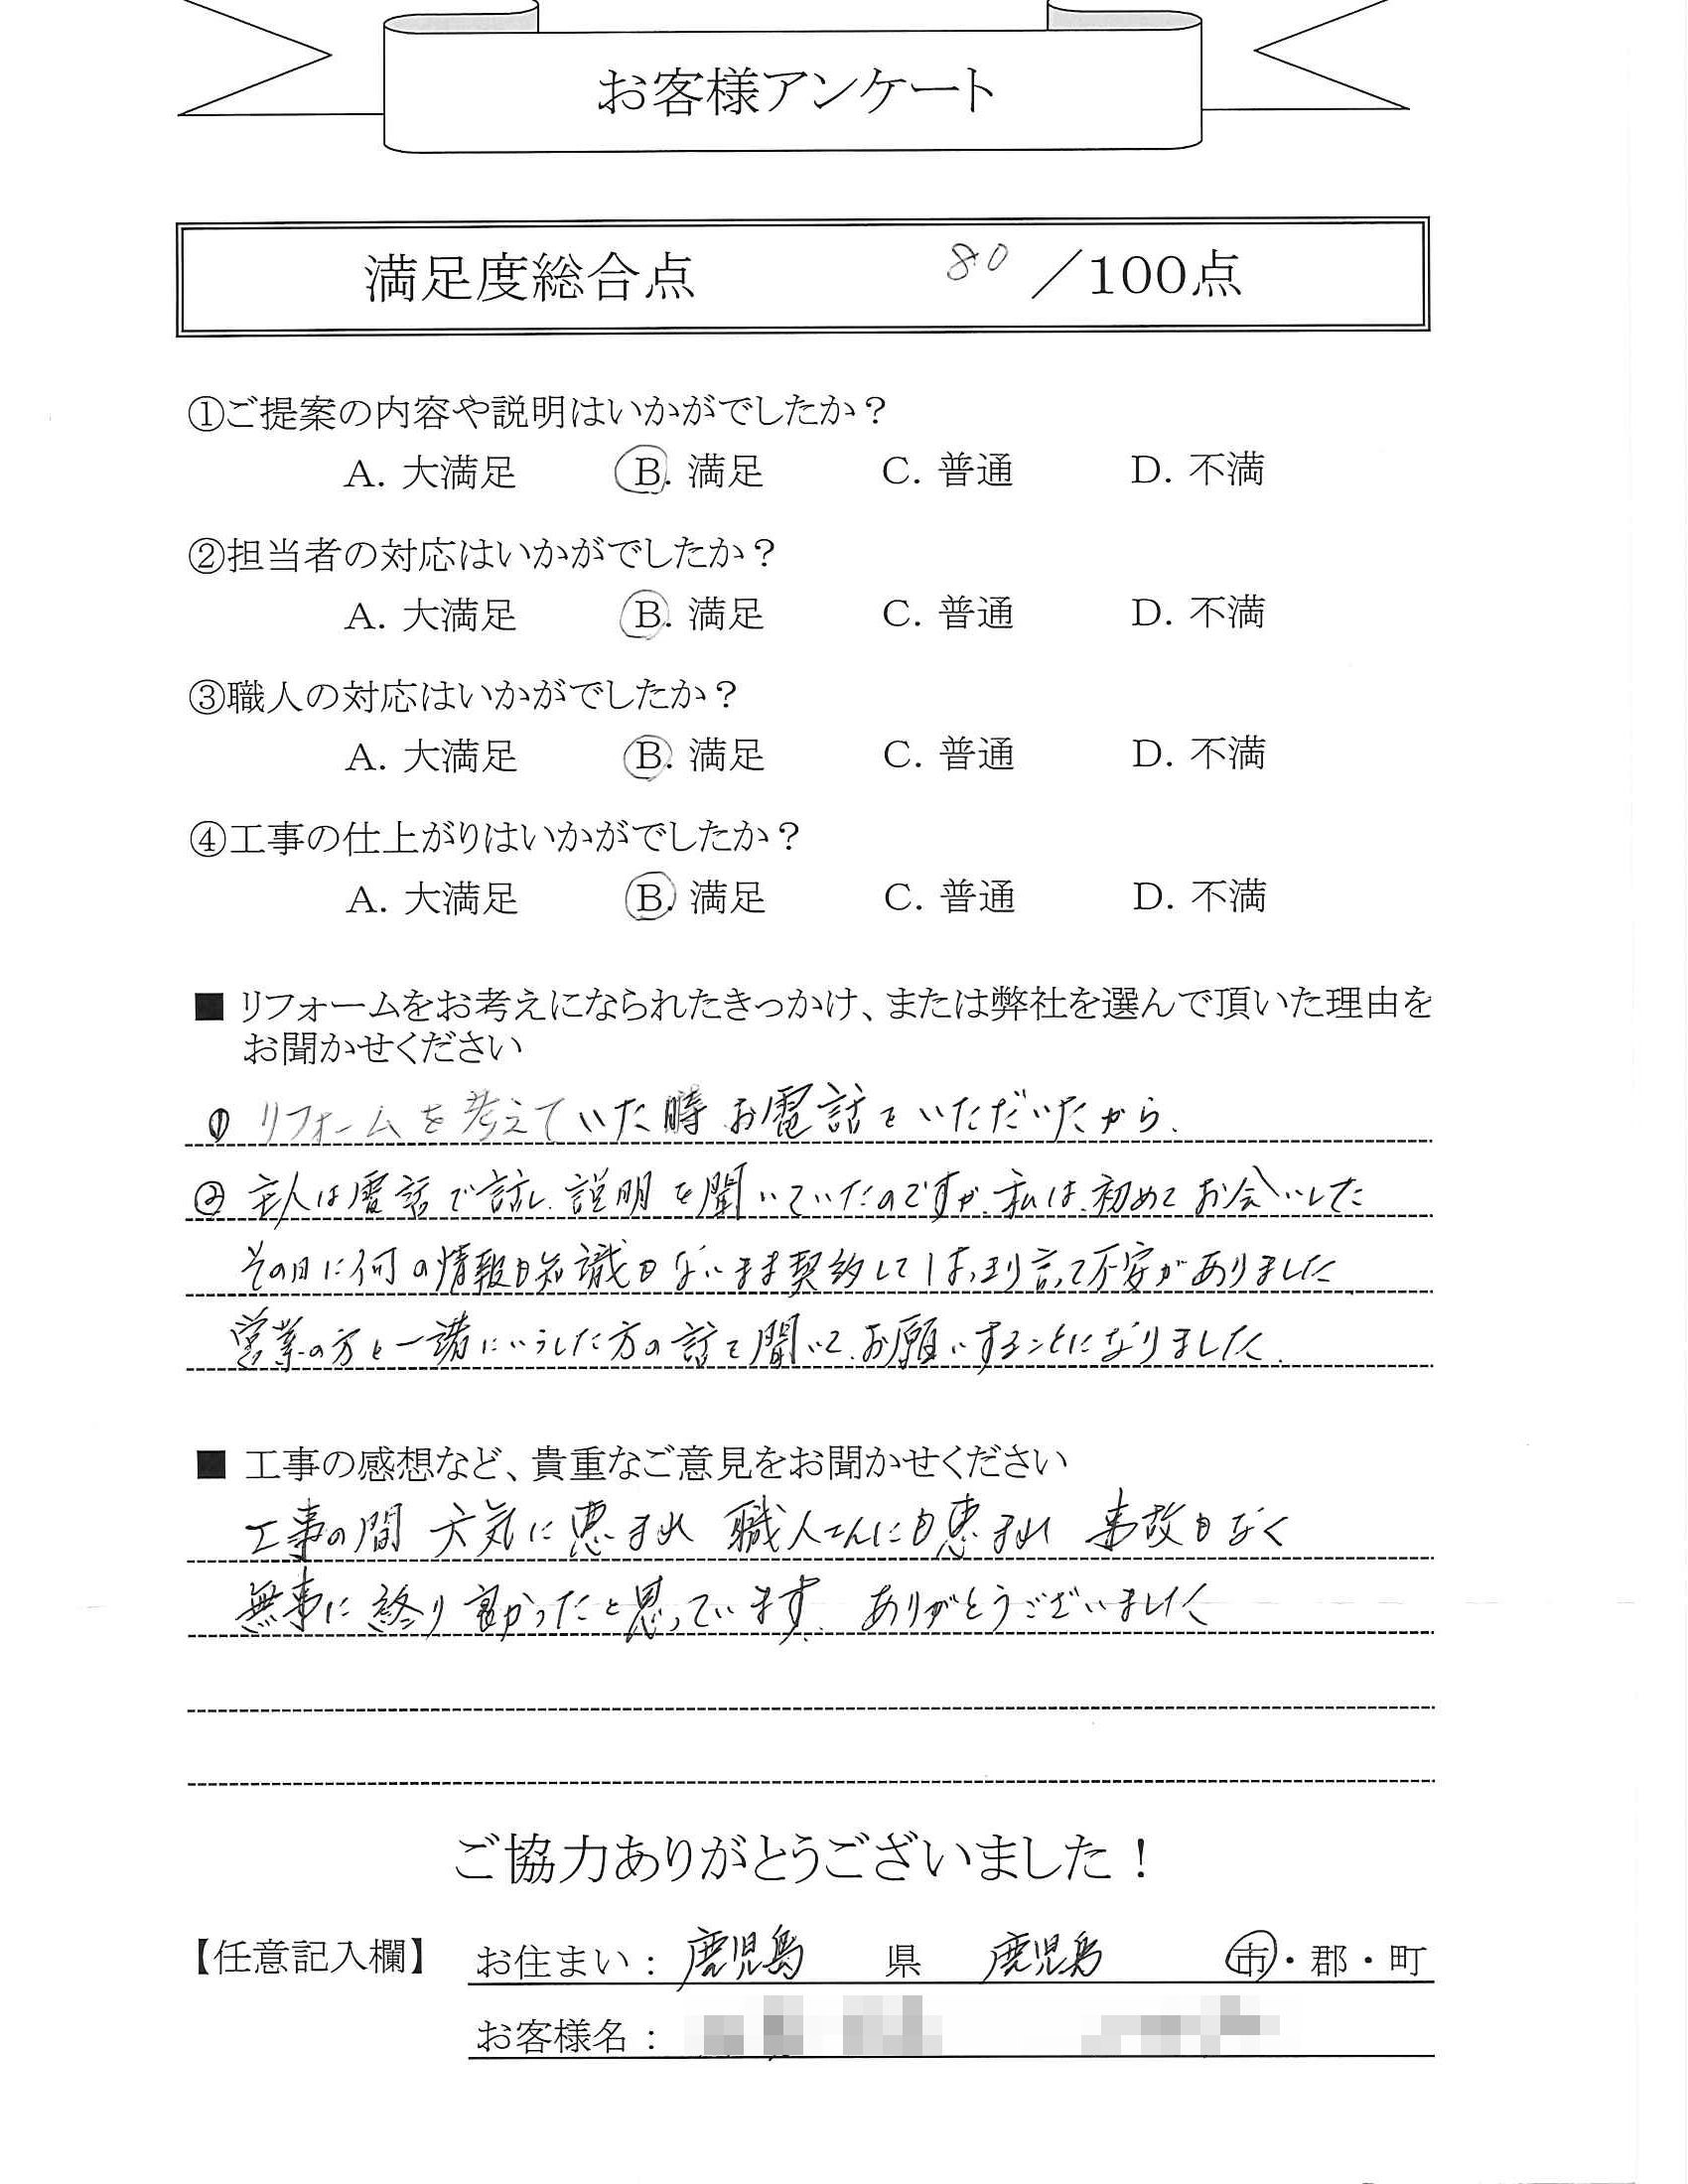 お客様アンケート
満足度総合点 80 ／100点
①ご提案の内容や説明はいかがでしたか？
A. 大満足 B. 満足 C. 普通 D. 不満
②担当者の対応はいかがでしたか？
A. 大満足 B. 満足 C. 普通 D. 不満
③職人の対応はいかがでしたか？
A. 大満足 B. 満足 C. 普通 D. 不満
④工事の仕上がりはいかがでしたか？
A. 大満足 B. 満足 C. 普通 D. 不満
■ リフォームをお考えになられたきっかけ、または弊社を選んで頂いた理由を
お聞かせください
① リフォームを考えていた時お電話をいただいたから.
② 主人は電話で話し、説明を聞いていたのですが、私は、初めてお会いした
その日に何の情報も知識もないまま契約してはっきり言って不安がありました
営業の方と一緒にいらした方の話を聞いて、お願いすることになりました.
■ 工事の感想など、貴重なご意見をお聞かせください
工事の間 天気に恵まれ 職人さんにも恵まれ 事故もなく
無事に終り良かったと思っています. ありがとうございました
ご協力ありがとうございました！
【任意記入欄】 お住まい： 鹿児島 県 鹿児島 市・郡・町
お客様名：